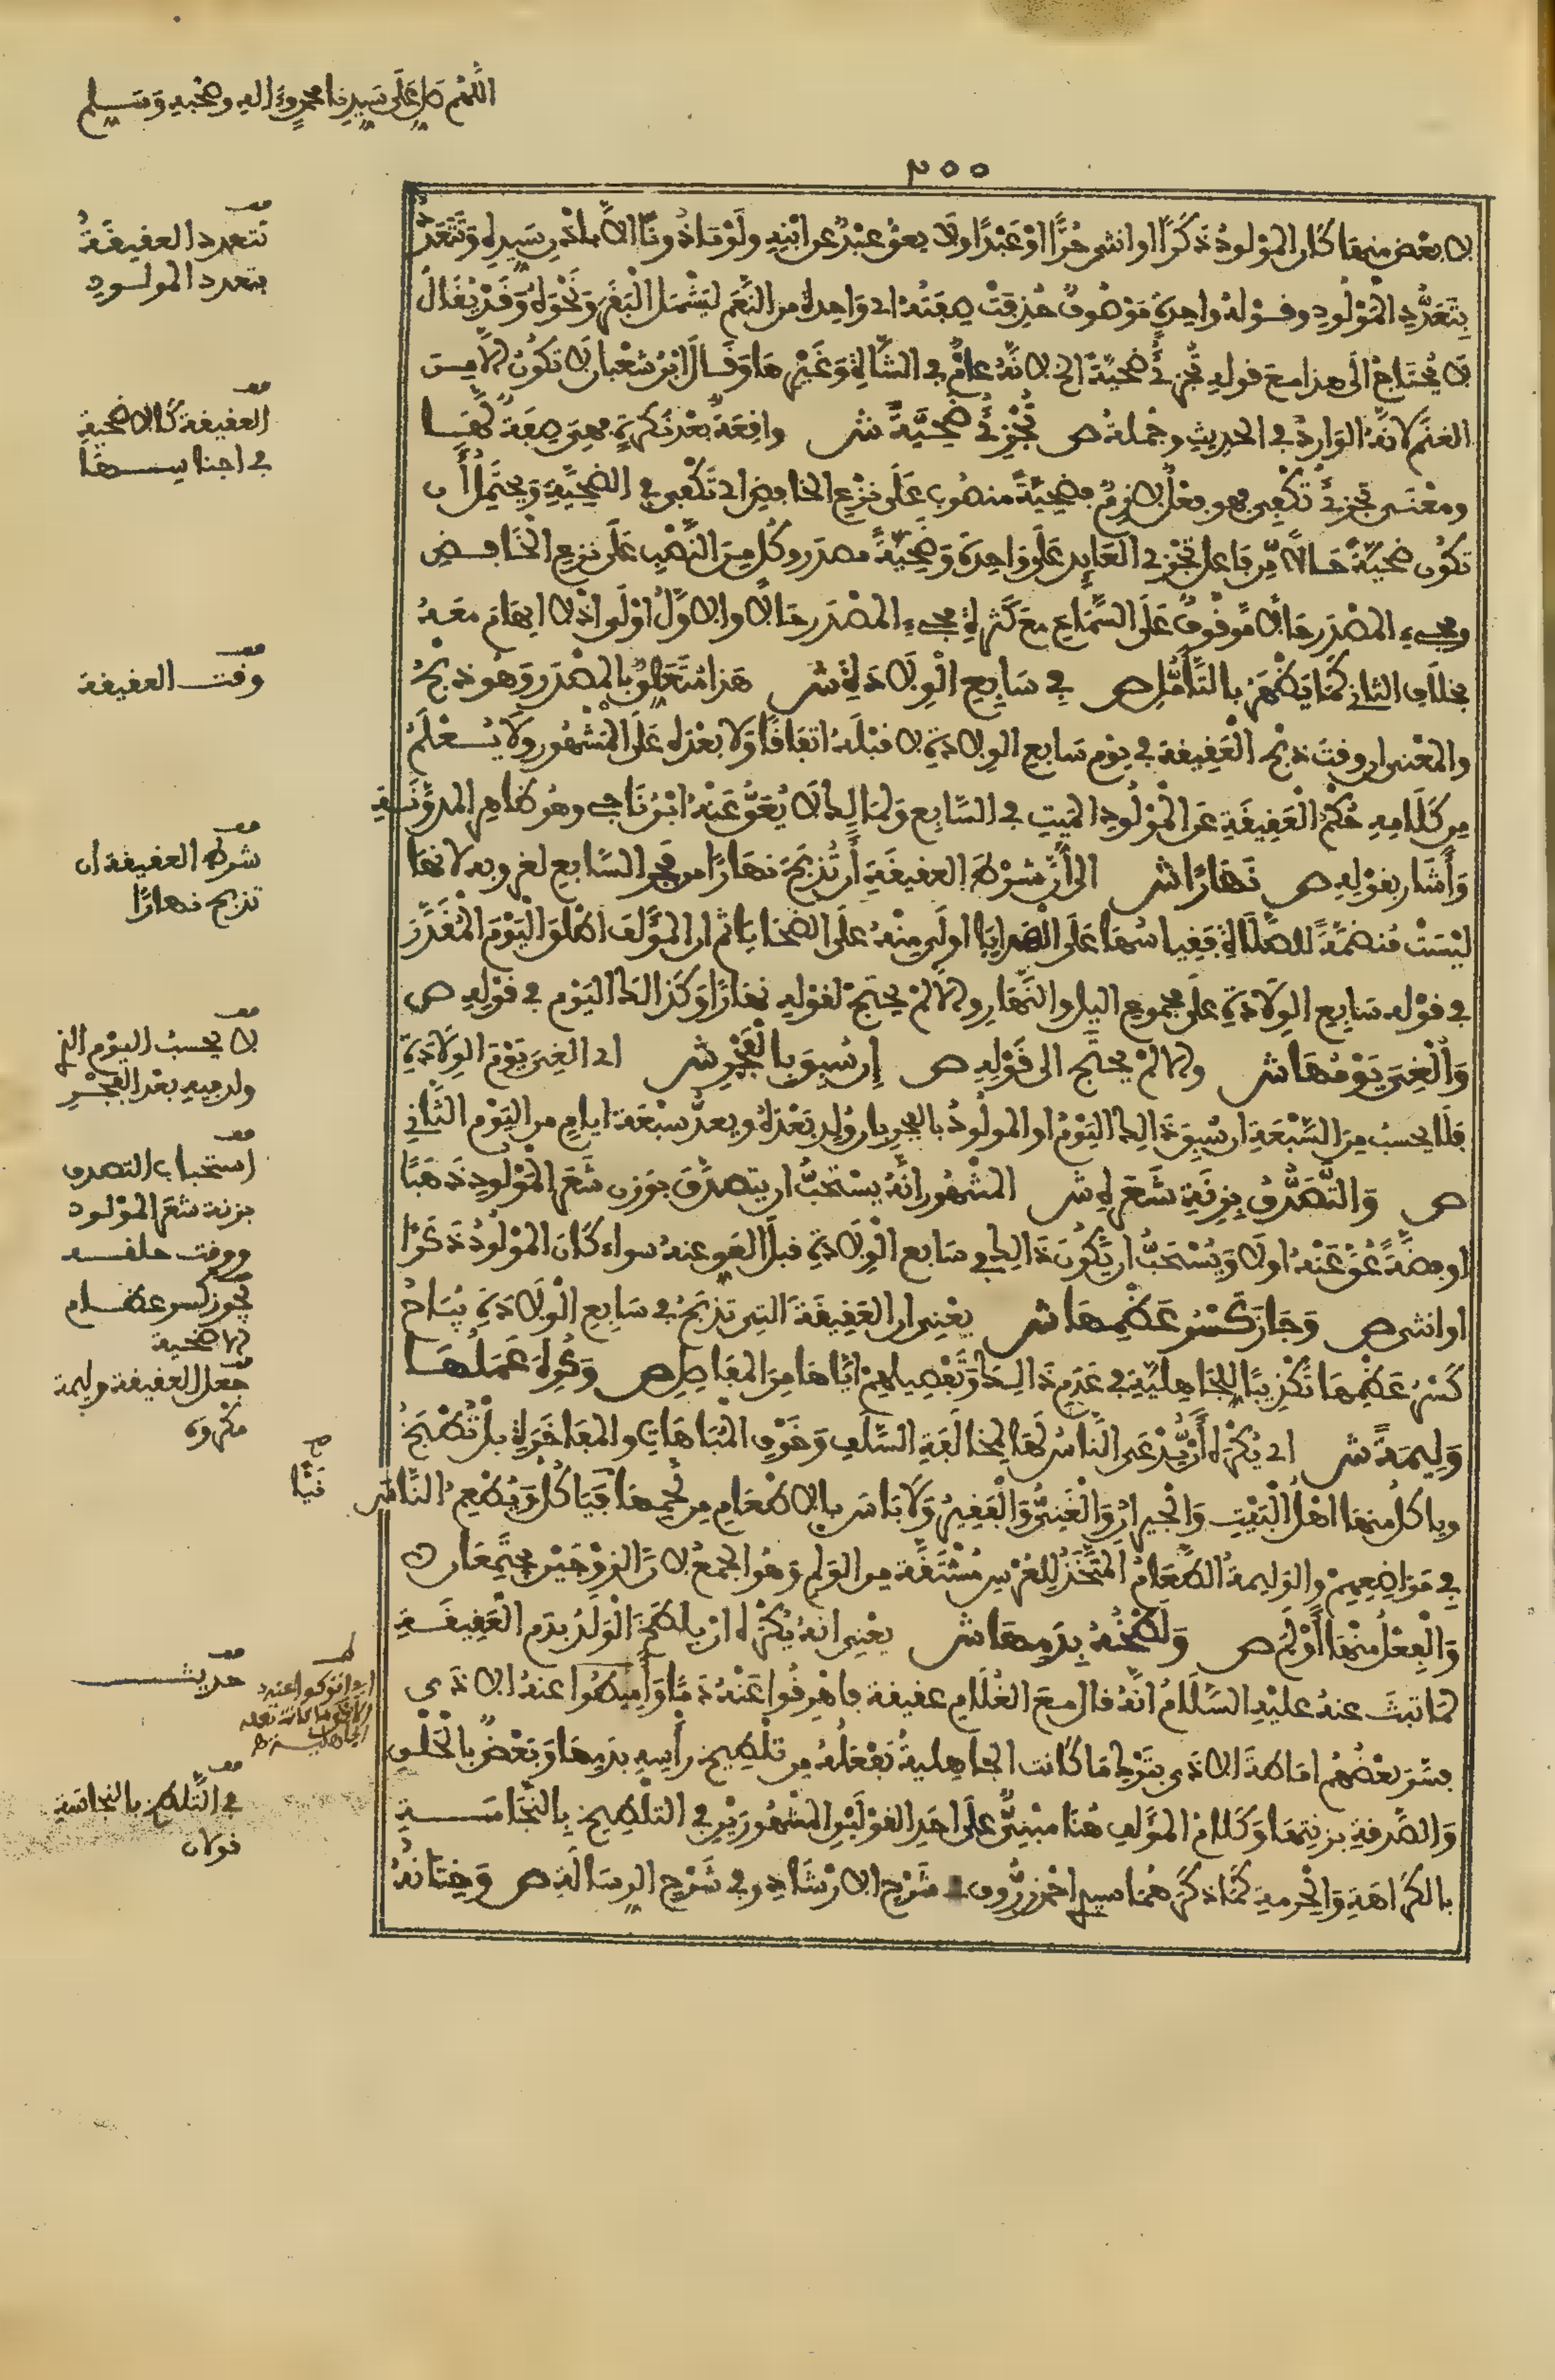 اللهم صل على سيدنا محمد وءاله وصحبه وسلم
٢٥٥
لا بعض منهما كان المولود ذكرا او انثى حرا او عبدا ولا يعق عبد عن ابنه ولو ماذونا الا باذن سيده وتتعدد
بتعدد المولود وقوله واحدة موصوف حذفت صفته اي واحدة من النعم ليشمل البقر ونحوه وقد يقال
لا يحتاج الى هذا مع قوله تجزئ ضحية الخ لانه عام في الشاة وغيرها وقال ابن شعبان لا تكون الا من
الغنم لانه الوارد في الحديث وجملة ص تجزئ ضحية ش واقعة بعد نكرة فهي صفة لها
ومعنى تجزئ تكفي فهو فعل لازم فضحية منصوب على نزع الخافض اي تكفي في الضحية ويحتمل أن
تكون ضحية حالا من فاعل تجزئ العايد على واحدة وضحية مصدر وكل من النصب على نزع الخافض
ومجيء المصدر حالا موقوف على السماع مع كثرة مجيء المصدر حالا والاول اولى اذ لا ايهام معه
بخلاف الثاني كما يظهر بالتأمل ص في سابع الولادة ش هذا متعلق بالمصدر وهو ذبح
والمعنى ان وقت ذبح العقيقة في يوم سابع الولادة لا قبله اتفاقا ولا بعده على المشهور ولا يعلم
من كلامه حكم العقيقة عن المولود الميت في السابع ولمالك لا يعق عنه ابن ناجي وهو ظاهر المدونة
وأشار بقوله ص نهارا ش الى أن شرط العقيقة أن تذبح نهارا من فجر السابع لغروبه لانها
ليست منضمة للصلاة فقياسها على الهدايا اولى منه على الضحايا ثم ان المؤلف اطلق اليوم المقدر
في قوله سابع الولادة على مجموع اليل والنهار والا لم يحتج لقوله نهارا وكذالك اليوم في قوله ص
وألغي يومها ش والا لم يحتج الى قوله ص إن سبق بالفجر ش اي الغي يوم الولادة
فلا يحسب من السبعة ان سبق ذالك اليوم او المولود بالفجر بان ولد بعده ويعد سبعة ايام من اليوم الثاني
ص والتصدق بزنة شعره ش المشهور انه يستحب ان يتصدق بوزن شعر المولود ذهبا
او فضة عق عنه اولا ويستحب ان يكون ذالك في سابع الولادة قبل العق عنه سواء كان المولود ذكرا
او انثى ص وجاز كسر عظمها ش يعني ان العقيقة التي تذبح في سابع الولادة يباح
كسر عظمها تكذيبا للجاهلية في عدم ذالك وتفصيلهم اياها من المفاصل ص وكره عملها
وليمة ش اي يكره أن يدعى الناس لها لمخالفة السلف وخوف المباهات والمفاخرة بل تطبخ
وياكل منها اهل البيت والجيران والغني والفقير ولا باس بالاطعام من لحمها نيا كل ويطعم الناس
في مواضعهم والوليمة الطعام المتخذ للعرس مشتقة من الولم وهو الجمع لان الزوجين يجتمعان
والفعل منها أولم ص ولطخه بدمها ش يعني انه يكره ان يلطخ الولد بدم العقيقة
لما ثبت عنه عليه السلام انه قال مع الغلام عقيقة فاهرقوا عنه دما وأميطوا عنه الاذى
فسر بعضهم اماطة الاذى بترك ما كانت الجاهلية تفعله من تلطيخ رأسه بدمها وبعض بالحلق
والصدقة بزنتها وكلام المؤلف هنا مبني على احد القولين المشهورين في التلطيخ بالنجاسة
بالكراهة والحرمة كما ذكرهما سيدي احمد زروق في شرح الارشاد وفي شرح الرسالة ص وختانه
تتعدد العقيقة
بتعدد المولود
العقيقة كالاضحية
في اجناسها
وقت العقيقة
شرط العقيقة ان
تذبح نهارا
لا يحسب اليوم الذي
ولد فيه بعد الفجر
استحباب التصدق
بزنة شعر المولود
ووقت حلقه
يجوز كسر عظام
الاضحية
جعل العقيقة وليمة
مكروه
نيا
حديث
في التلطخ بالنجاسة
قولان